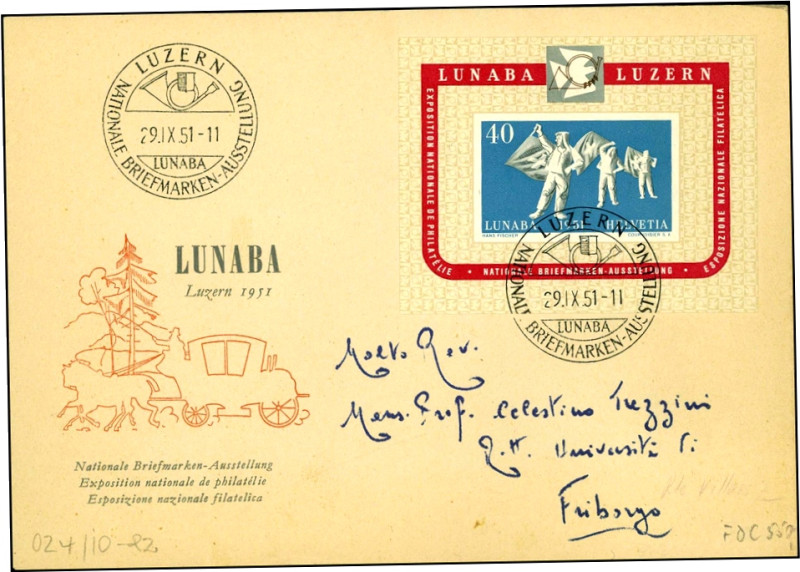 LUZERN
NATIONALE BRIEFMARKEN-AUSSTELLUNG
29.IX.51-11
LUNABA
LUNABA LUZERN
EXPOSITION NATIONALE DE PHILATÉLIE • NATIONALE BRIEFMARKEN-AUSSTELLUNG • ESPOSIZIONE NAZIONALE FILATELICA
40
LUNABA 1951 HELVETIA
HANS FISCHER COURVOISIER S.A.
LUZERN
NATIONALE BRIEFMARKEN-AUSSTELLUNG
29.IX.51-11
LUNABA
LUNABA
Luzern 1951
Molto Rev.
Mons. Prof. Celestino Trezzini
R.H. Università di
Friborgo
Nationale Briefmarken-Ausstellung
Exposition nationale de philatélie
Esposizione nazionale filatelica
024/10-22
FDC